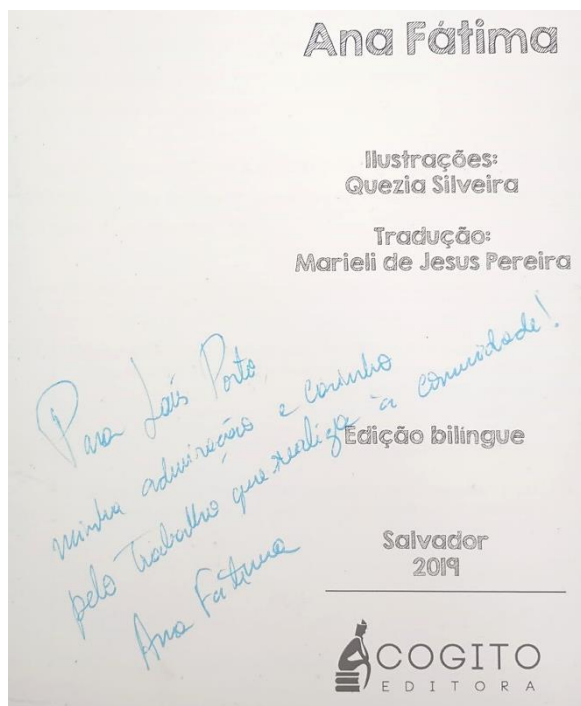 Ana Fátima
Ilustrações:
Quezia Silveira
Tradução:
Marieli de Jesus Pereira
Para Laís Porto,
minha admiração e carinho
pelo trabalho que realiza à comunidade!
Ana Fátima
Edição bilíngue
Salvador
2019
COGITO
EDITORA